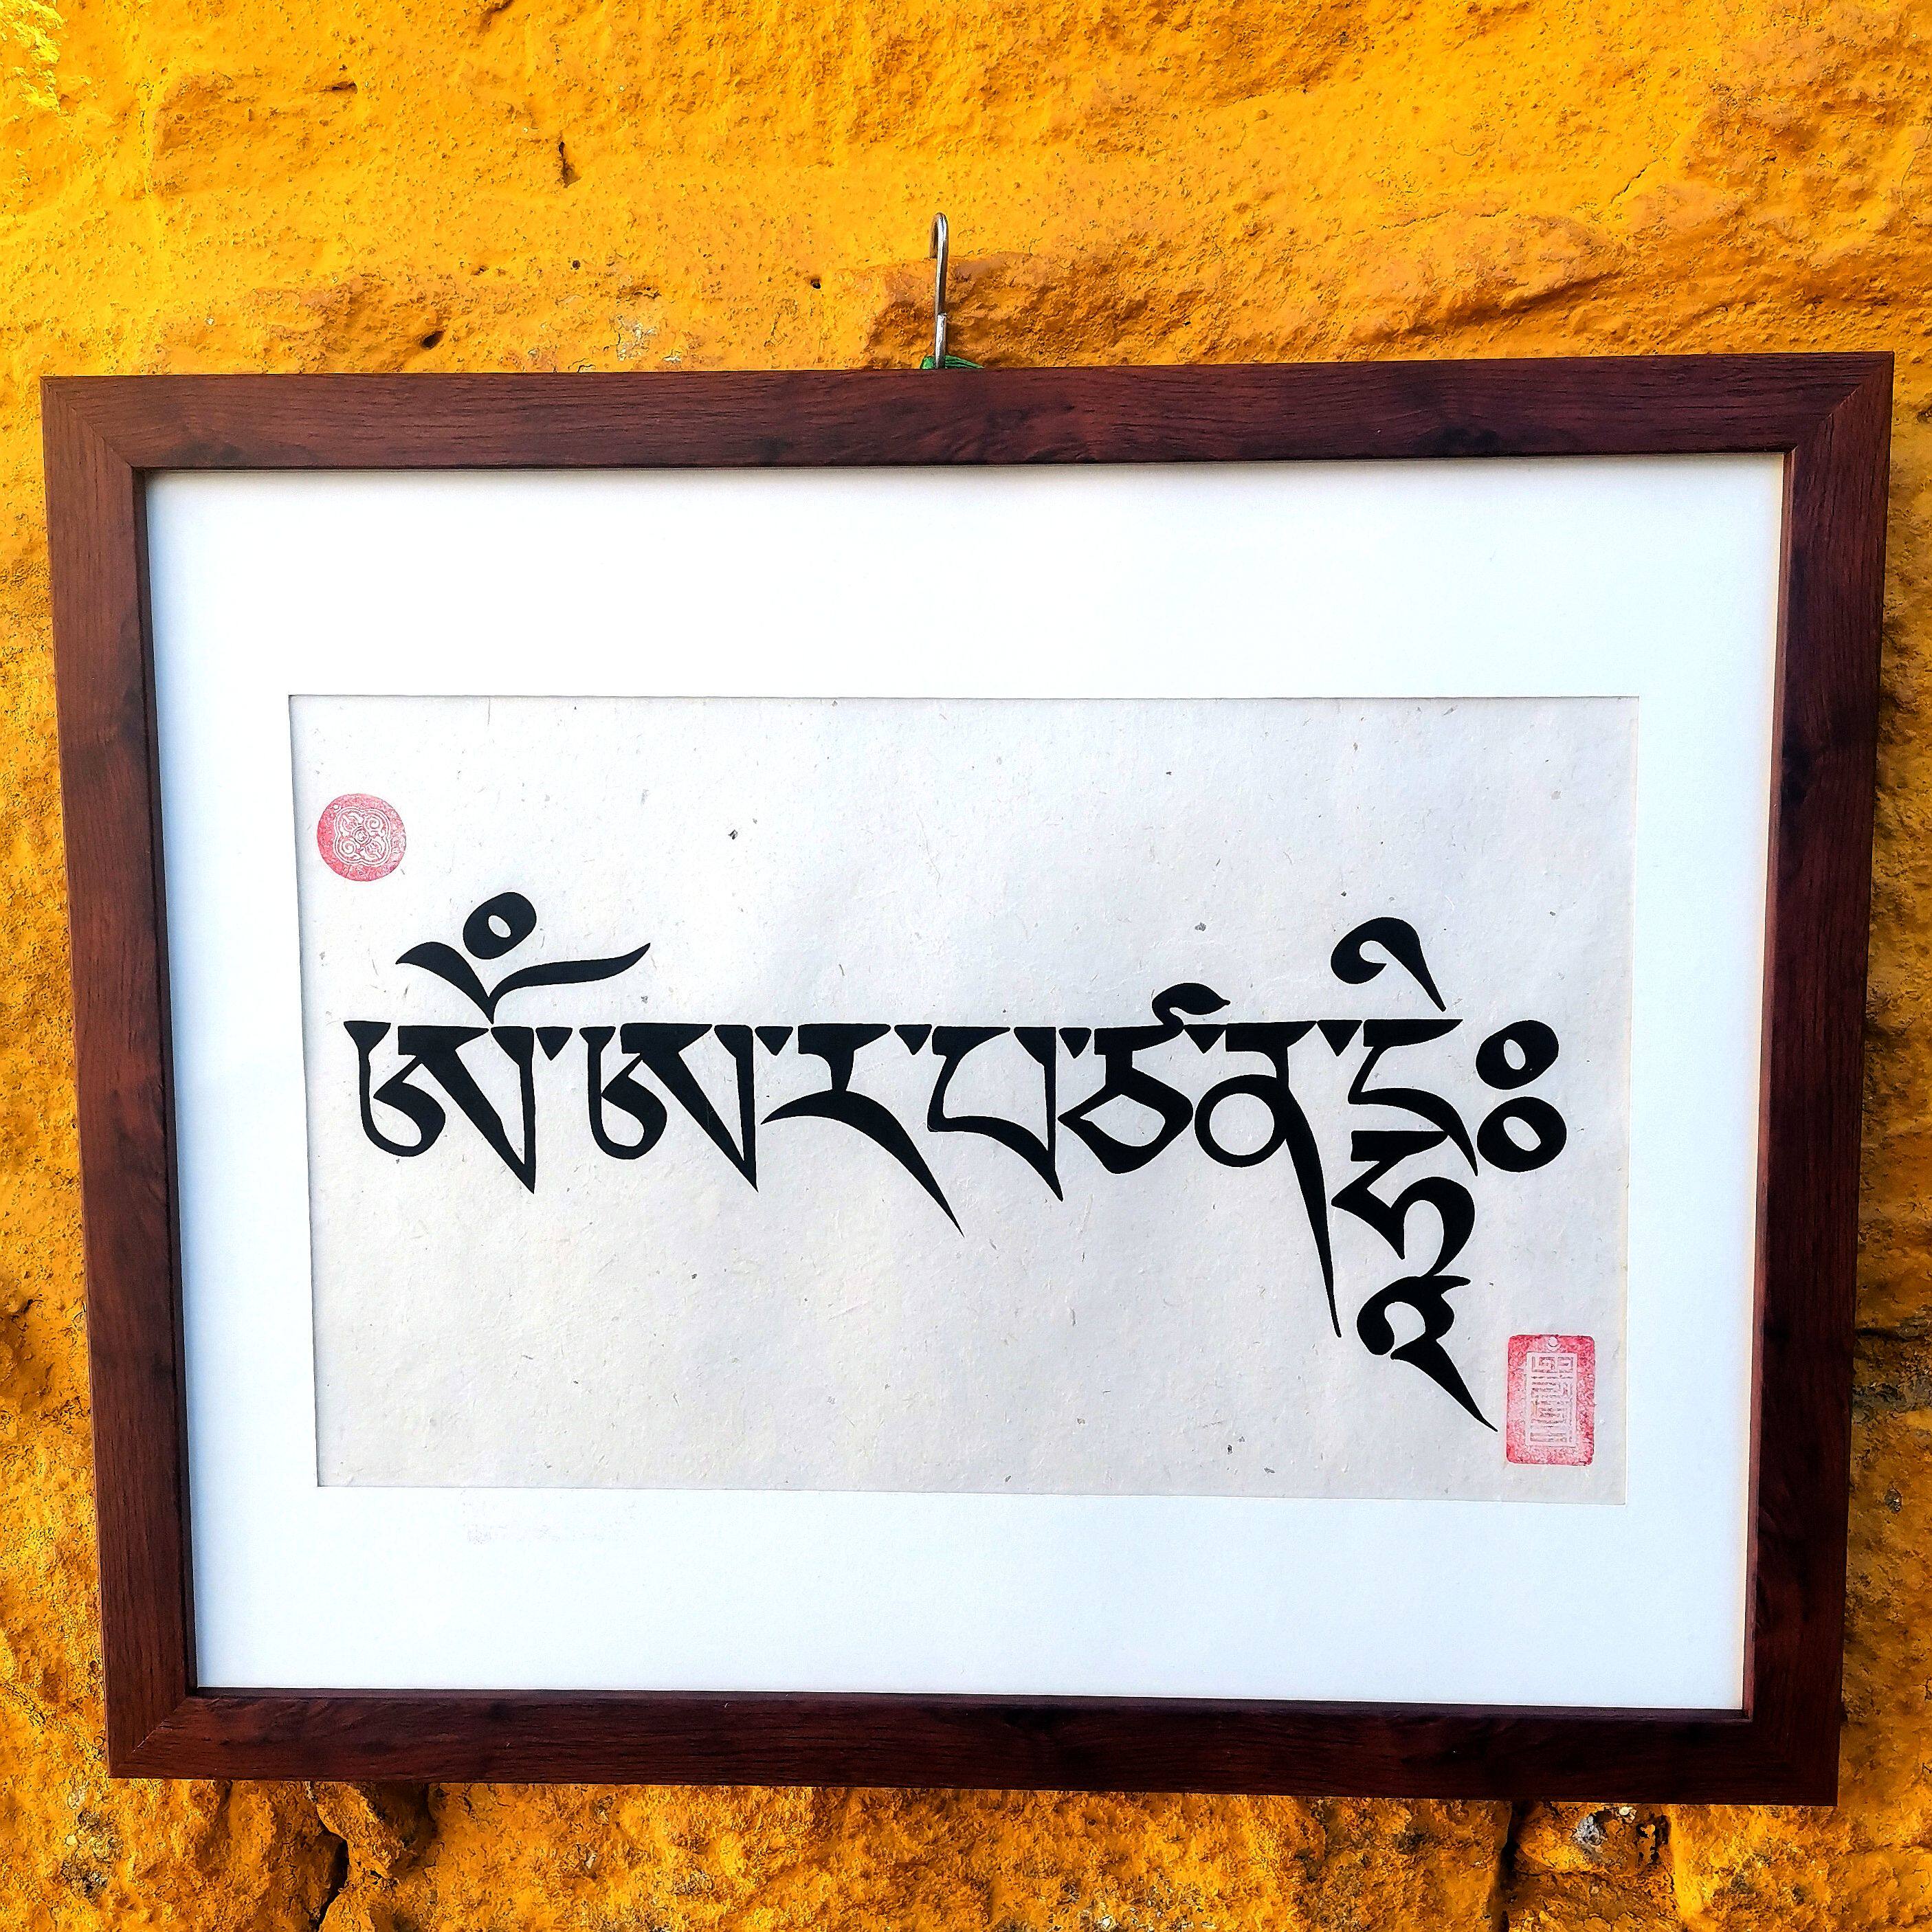 ཨོཾ་ཨ་ར་པ་ཙ་ན་དྷཱིཿ